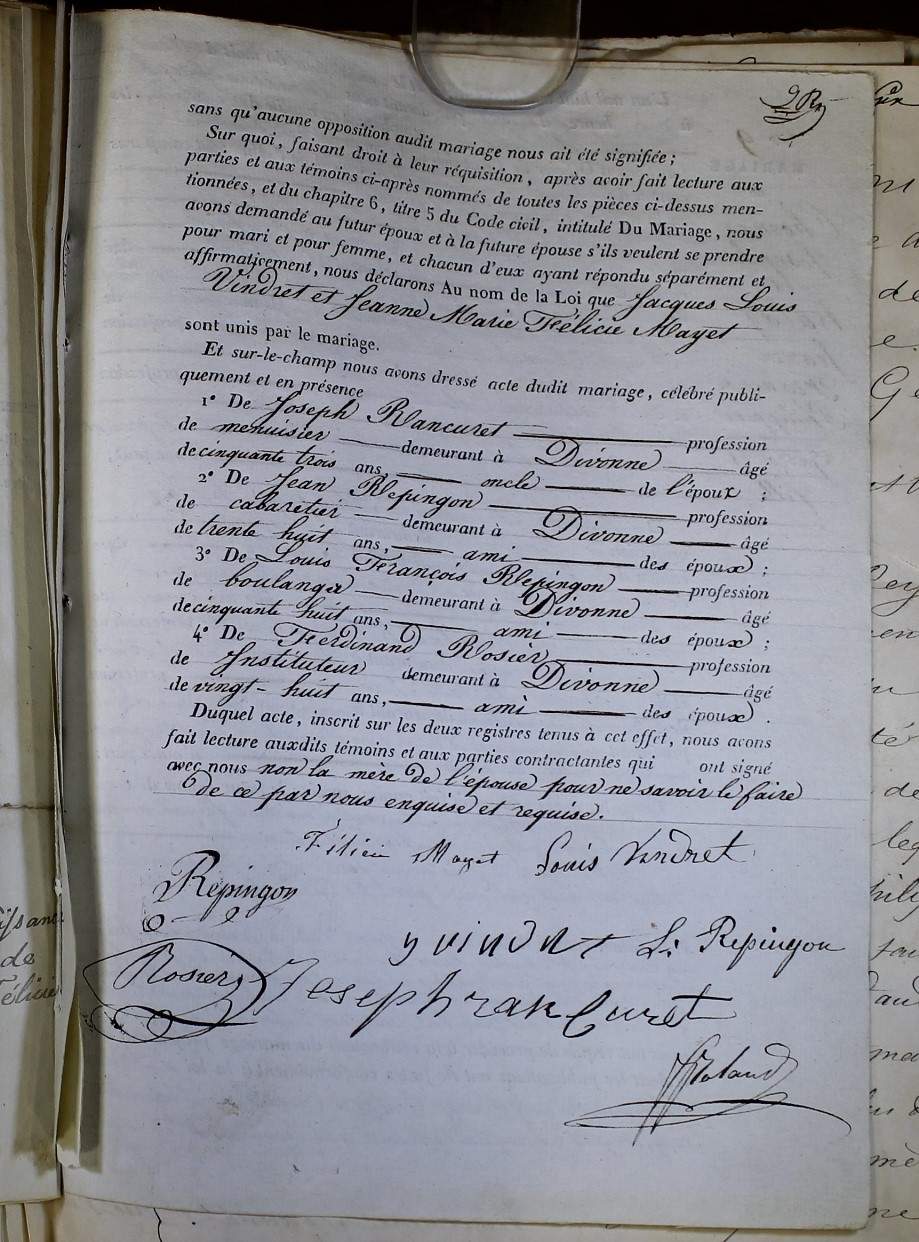 sans qu'aucune opposition audit mariage nous ait été signifiée ;
Sur quoi, faisant droit à leur réquisition, après avoir fait lecture aux
parties et aux témoins ci-après nommés de toutes les pièces ci-dessus men-
tionnées, et du chapitre 6, titre 5 du Code civil, intitulé Du Mariage, nous
avons demandé au futur époux et à la future épouse s'ils veulent se prendre
pour mari et pour femme, et chacun d'eux ayant répondu séparément et
affirmativement, nous déclarons Au nom de la Loi que Jacques Louis
Vindret et Jeanne Marie Félicie Mayet
sont unis par le mariage.
Et sur-le-champ nous avons dressé acte dudit mariage, célébré publi-
quement et en présence
1° De Joseph Rancuret profession
de menuisier demeurant à Divonne âgé
de cinquante trois ans, oncle de l'époux ;
2° De Jean Repingon profession
de cabaretier demeurant à Divonne âgé
de trente huit ans, ami des époux ;
3° De Louis François Repingon profession
de boulanger demeurant à Divonne âgé
de cinquante huit ans, ami des époux ;
4° De Ferdinand Rosier profession
de Instituteur demeurant à Divonne âgé
de vingt-huit ans, ami des époux.
Duquel acte, inscrit sur les deux registres tenus à cet effet, nous avons
fait lecture auxdits témoins et aux parties contractantes qui ont signé
avec nous non la mère de l'épouse pour ne savoir le faire
de ce par nous enquise et requise.
Félicie Mayet Louis Vindret
Repingon
L. Repingon
Rosier Joseph rancuret